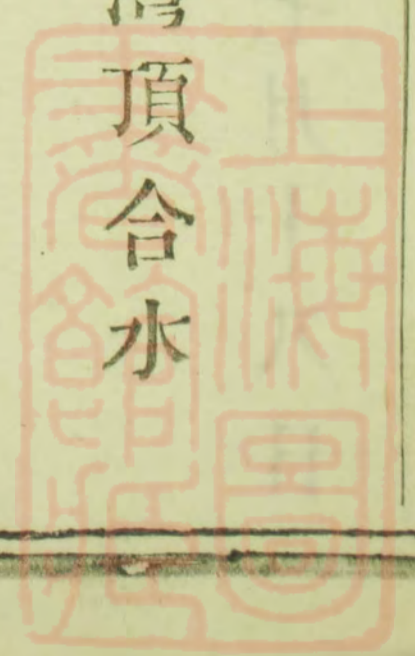 頂合水
上海圖
書館藏